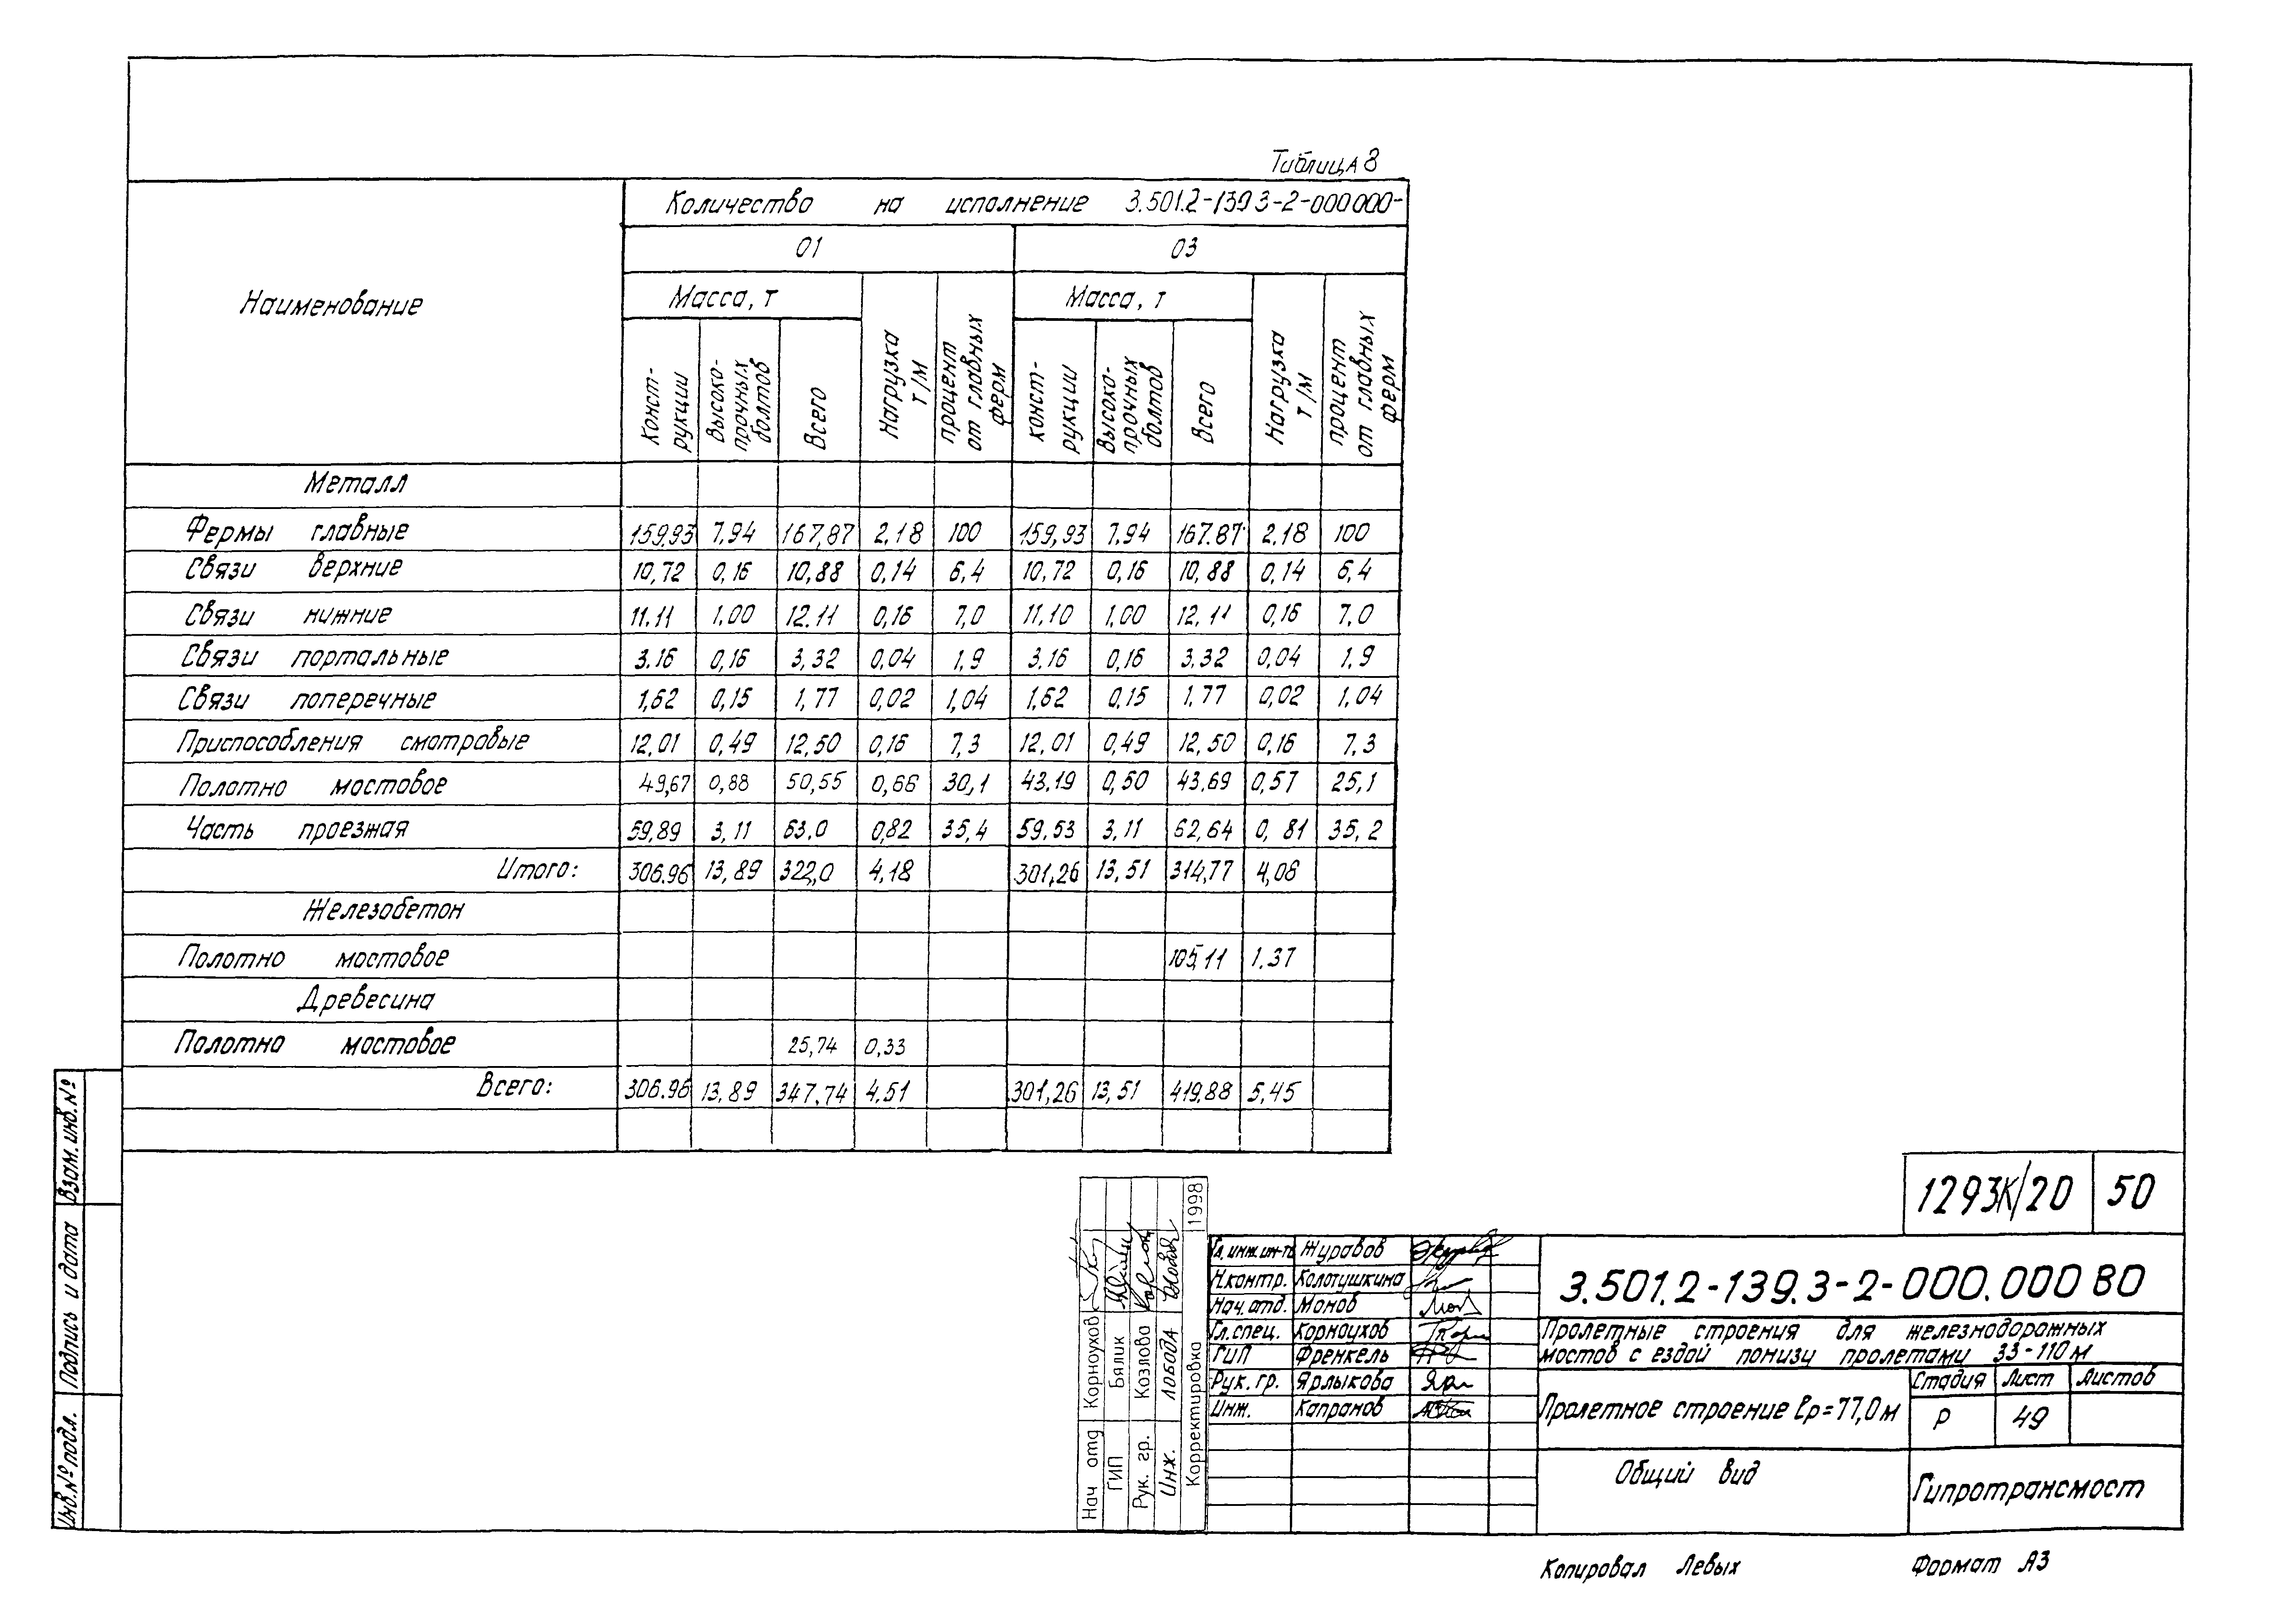 Таблица 8
Наименование
Количество на исполнение 3.501.2-139 3-2-000000-
01 03
Масса, т Масса, т
Конст-рукции Высоко-прочных болтов Всего Нагрузка т/м процент от главных ферм конст-рукции Высоко-прочных болтов Всего Нагрузка т/м процент от главных ферм
Металл
Фермы главные 159,93 7,94 167,87 2,18 100 159,93 7,94 167.87 2,18 100
Связи верхние 10,72 0,16 10,88 0,14 6,4 10,72 0,16 10,88 0,14 6,4
Связи нижние 11.11 1,00 12.11 0,16 7,0 11,10 1,00 12,11 0,16 7,0
Связи портальные 3.16 0,16 3,32 0,04 1,9 3,16 0,16 3,32 0,04 1,9
Связи поперечные 1,62 0,15 1,77 0,02 1,04 1,62 0,15 1,77 0,02 1,04
Приспособления смотровые 12,01 0,49 12,50 0,16 7,3 12,01 0,49 12,50 0,16 7,3
Полотно мостовое 49,67 0,88 50,55 0,66 30,1 43,19 0,50 43,69 0,57 25,1
Часть проезжая 59,89 3,11 63.0 0,82 35,4 59.53 3,11 62,64 0,81 35,2
Итого: 306.96 13,89 322,0 4,18 301,26 13,51 314,77 4,08
Железобетон
Полотно мостовое 105,11 1.37
Древесина
Полотно мостовое 25,74 0,33
Всего: 306.96 13,89 347.74 4.51 301,26 13,51 419.88 5,45
Взам.инв.№
Подпись и дата
Инв.№ подл.
1293К/20 50
Нач отд Корноухов
ГИП Бялик
Рук. гр. Козлова
Инж. Лобода
Корректировка 1998
Гл. инж. ин-та Журавов
Н.контр. Колотушкина
Нач.отд. Монов
Гл.спец. Корноухов
ГИП Френкель
Рук. гр. Ярлыкова
Инж. Капранов
3.501.2-139.3-2-000.000 ВО
Пролетные строения для железнодорожных
мостов с ездой понизу пролетами 33-110 м
Пролетное строение lр=77,0 м
Стадия Лист Листов
Р 49
Общий вид
Гипротрансмост
Копировал Левых Формат А3